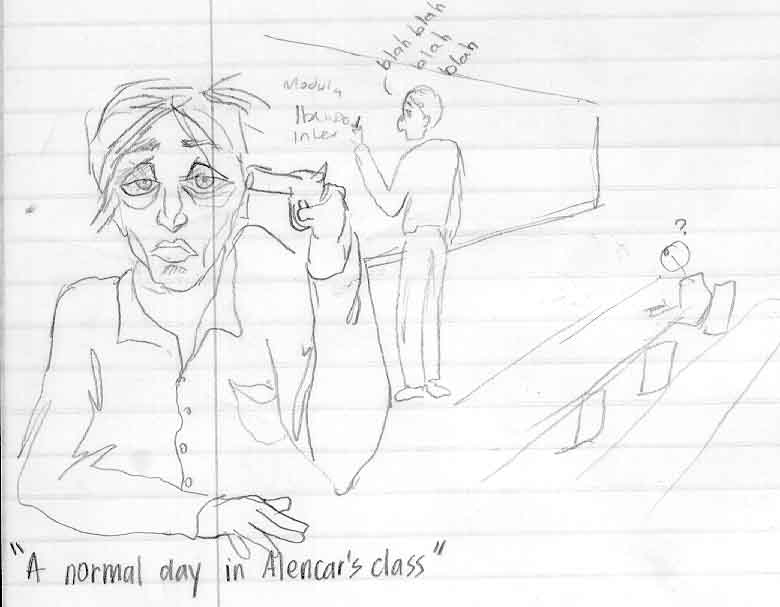 blah blah
blah
blah
Modula
?
"A normal day in Alencar's class"